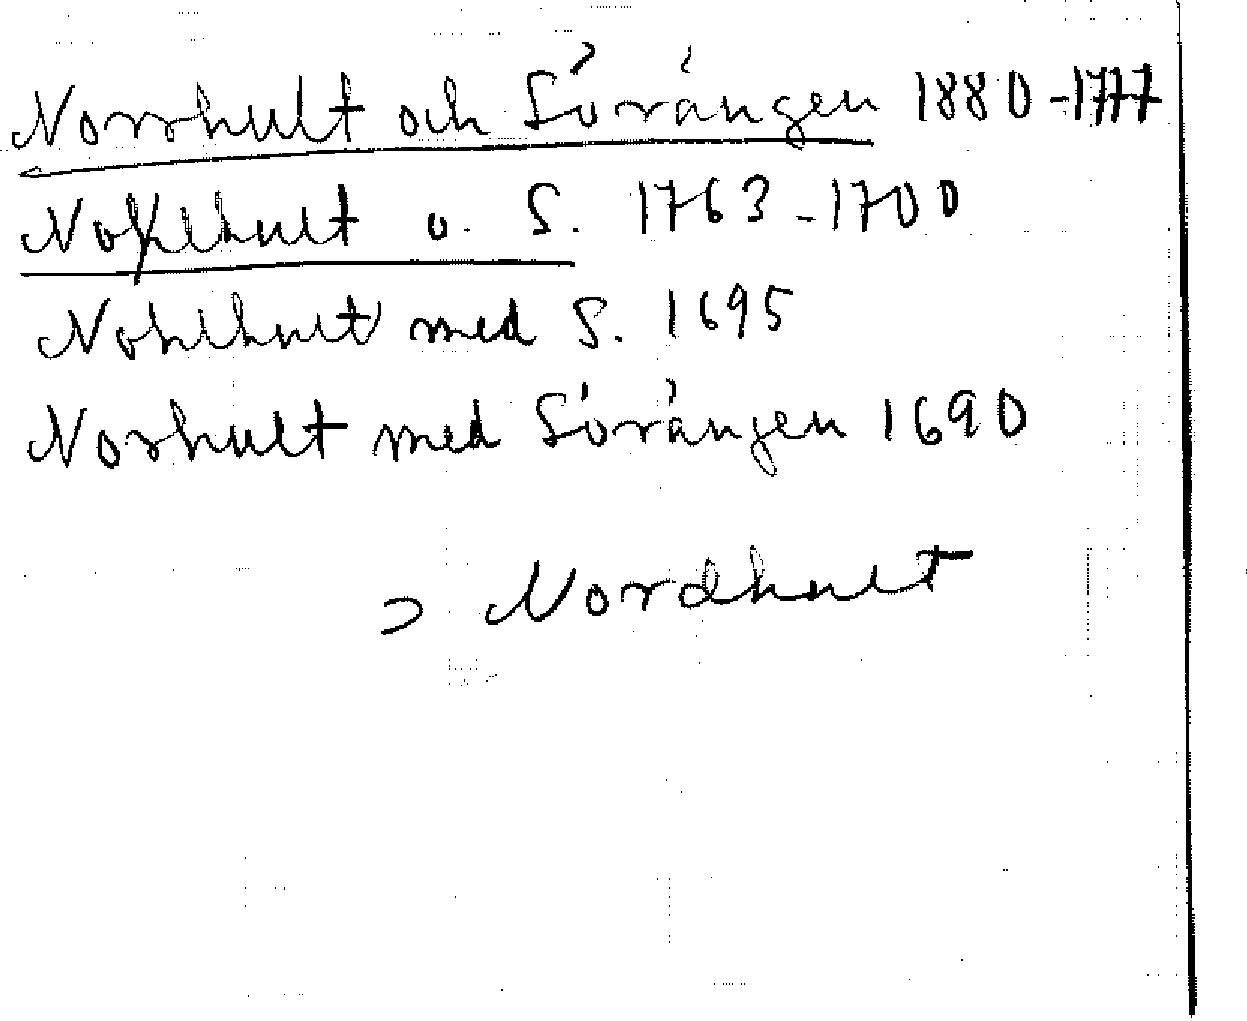 Norrhult och Sörängen 1880-1777
Nohlhult o. S. 1763-1700
Nohlhult med S. 1695
Norhult med Sörängen 1690
> Nordhult